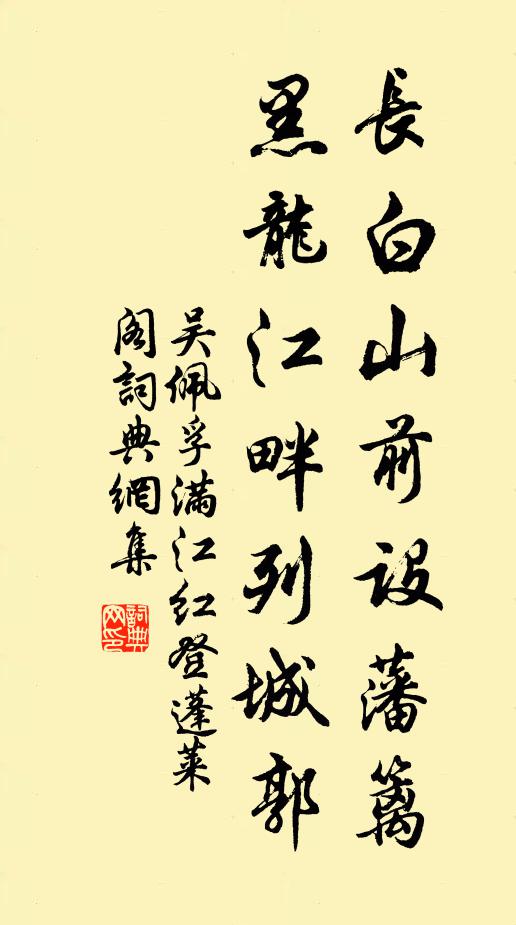 長白山前設藩籬
黑龍江畔列城郭
吴佩孚滿江红登蓬萊
閣詞典網集
詞典
网印